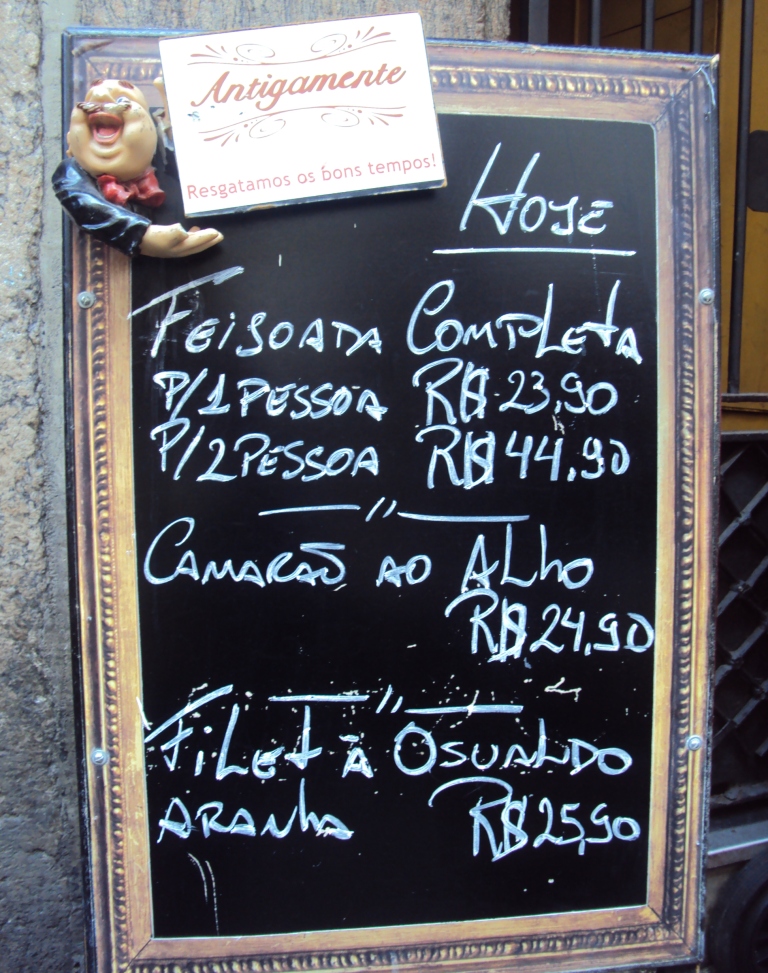 Antigamente
Resgatamos os bons tempos!
HOJE
FEIJOADA COMPLETA
P/1 PESSOA R$ 23,90
P/2 PESSOA R$ 44,90
CAMARÃO AO ALHO
R$ 24,90
FILET À OSUALDO
ARANHA R$ 25,90